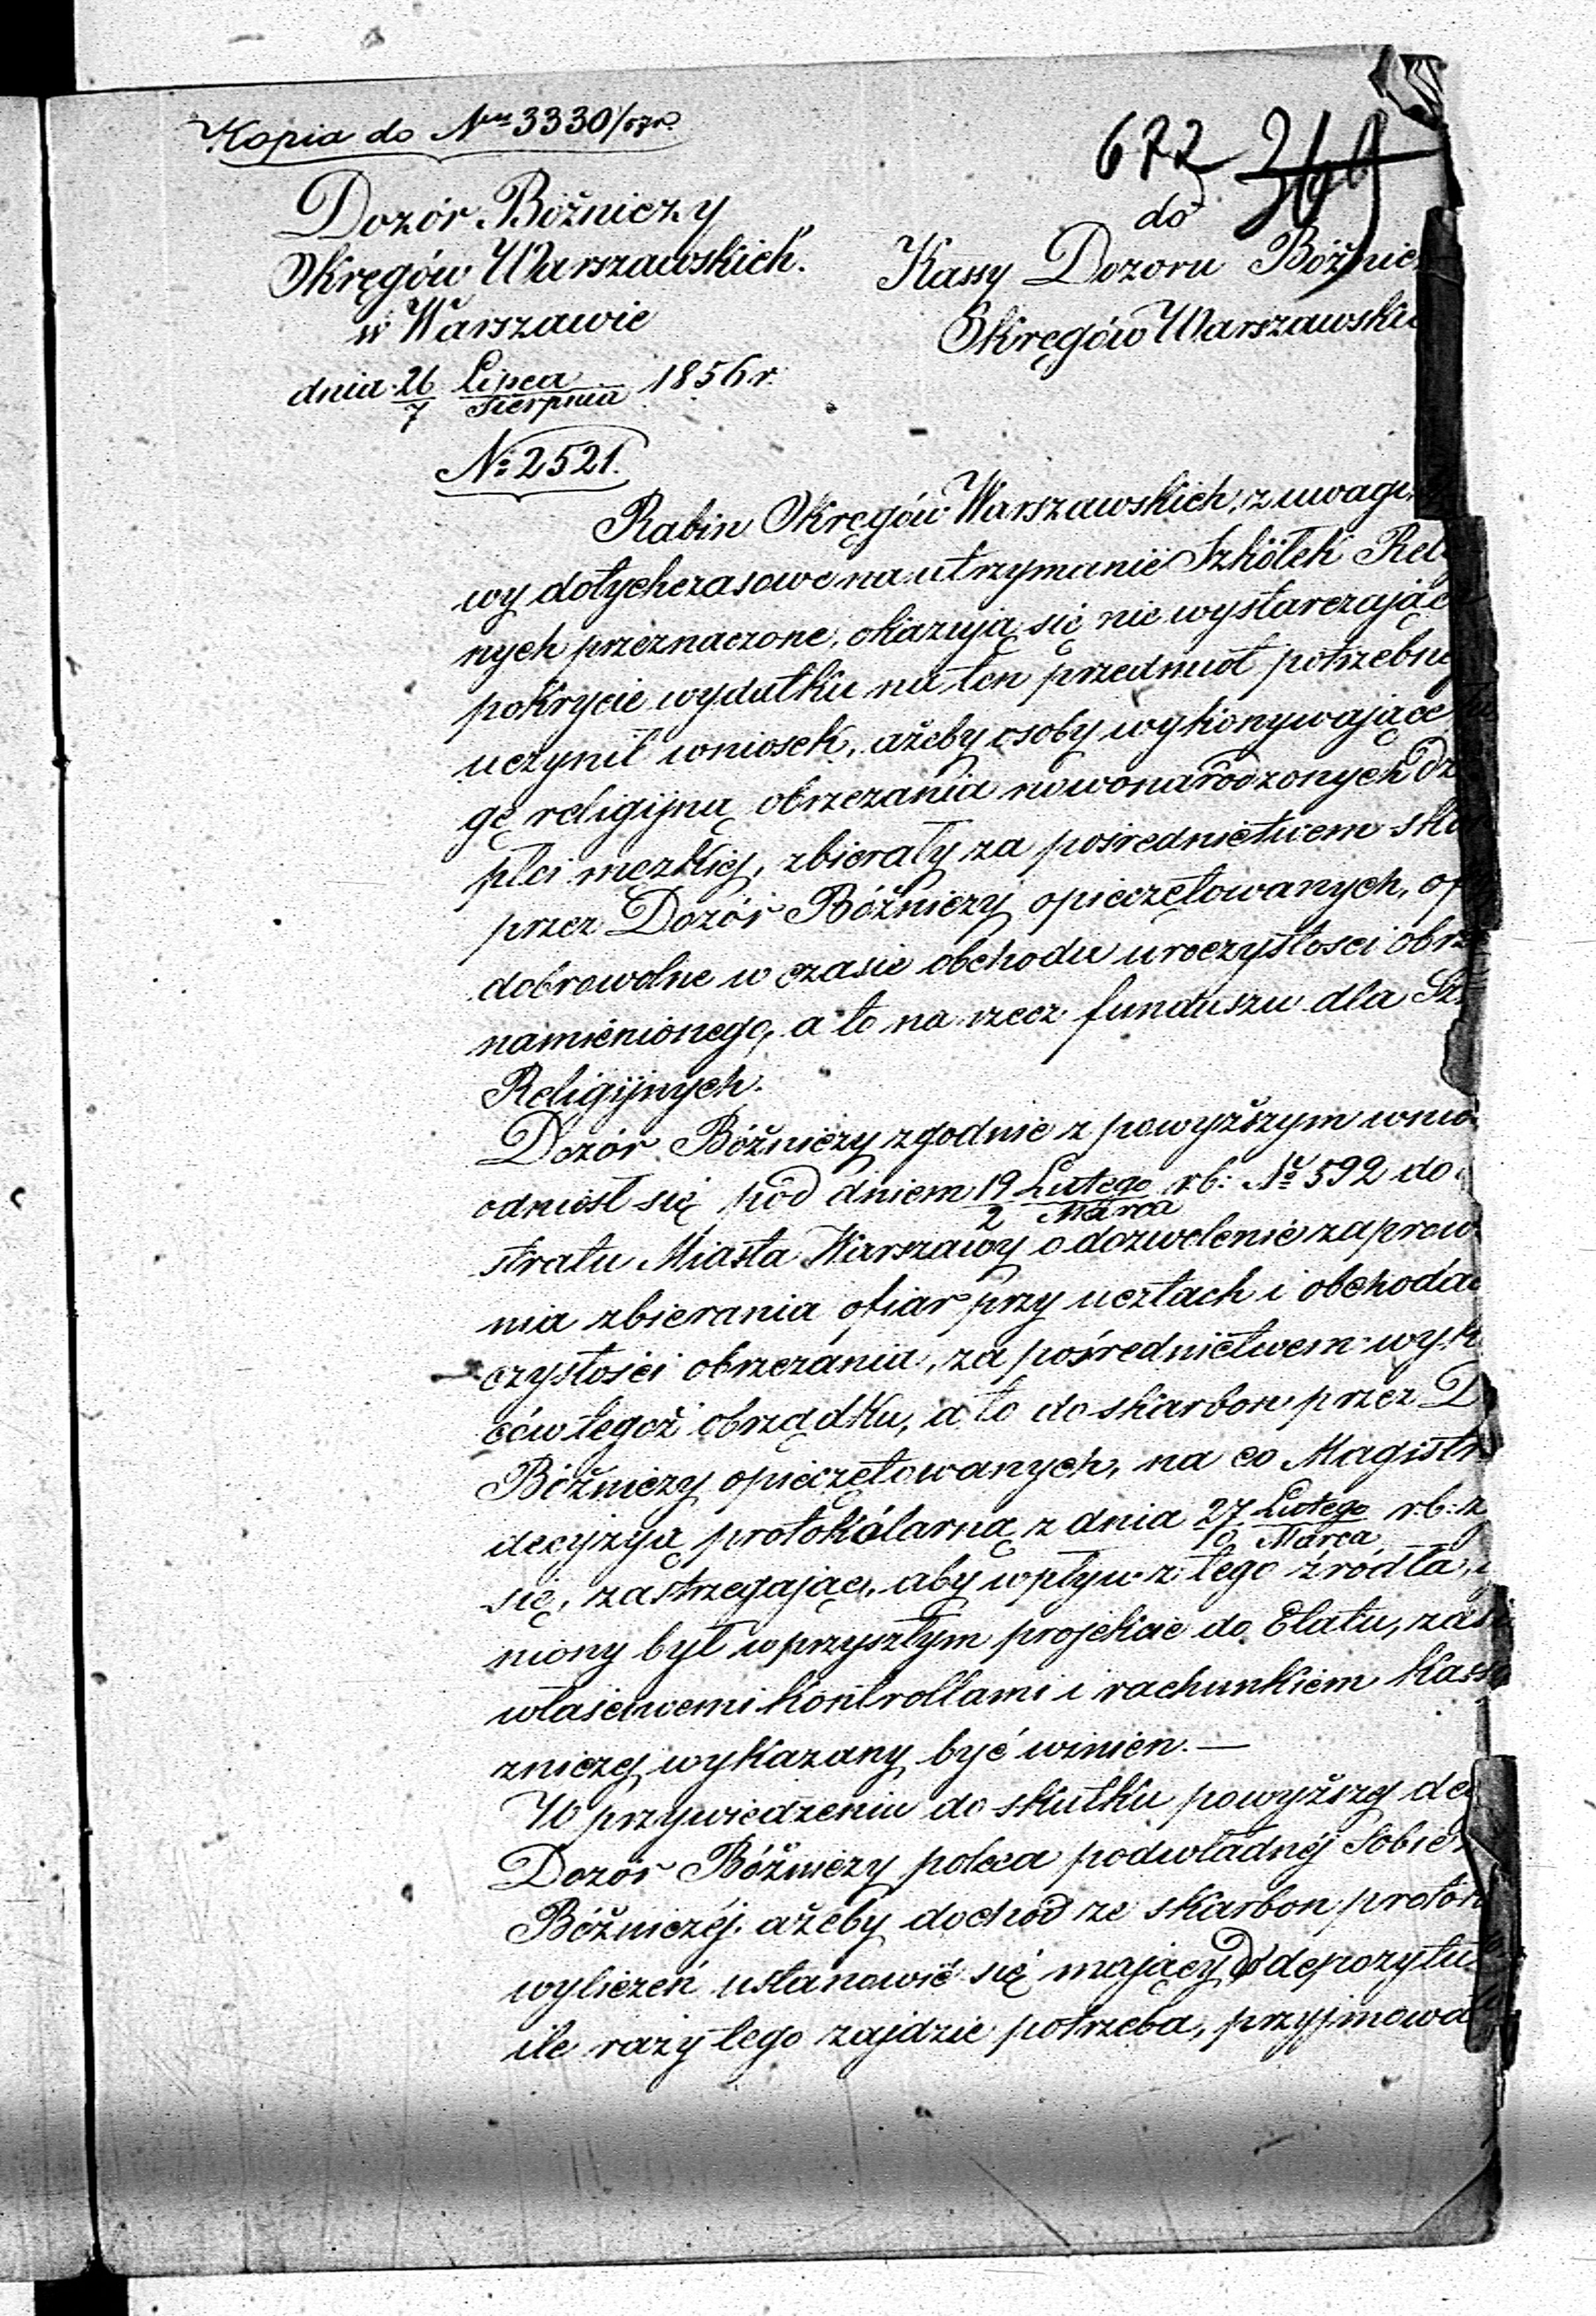 Kopia do Nru 3330/57 r.
672 369
Dozór Bóżniczy
Okręgów Warszawskich.
w Warszawie
dnia 26/7 Lipca/Sierpnia 1856 r.
№ 2521.
do
Kassy Dozoru Bóżnic
Okręgów Warszawskic
Rabin Okręgów Warszawskich, z uwagi
wy dotychczasowe na utrzymanie Szkółek Reli
nych przeznaczone, okazują się nie wystarczając
pokrycie wydatku na ten przedmiot potrzebne
uczynił wniosek, ażeby osoby wykonywające
gę religijną obrzezania nowonarodzonych dz
płci męzkiej, zbierały za pośrednictwem ska
przez Dozór Bóżniczy opieczętowanych, of
dobrowolne w czasie obchodu uroczystości obrz
namienionego, a to na rzecz funduszu dla Sz
Religijnych.
Dozór Bóżniczy zgodnie z powyższym wnio
odniósł się pod dniem 19/2 Lutego/Marca r.b: № 592 do
stratu Miasta Warszawy o dozwolenie zaprow
nia zbierania ofiar przy ucztach i obchodac
czystości obrzezania, za pośrednictwem wyk
ców tegoż obrządku, a to do skarbon przez D
Bóżniczy opieczętowanych, na co Magistr
decyzyą protokólarną z dnia 27/10 Lutego/Marca r.b: z
się, zastrzegając, aby wpływ z tego źródła,
niony był w przyszłym projekcie do Etatu, zaś
właściwemi kontrollami i rachunkiem Kass
zniczej wykazany być winien. —
W przywiedzeniu do skutku powyższej dec
Dozór Bóżniczy poleca podwładnéj Sobie
Bóżniczéj, ażeby dochod ze skarbon protok
wyliczeń ustanowić się mający do depozytu
ile razy tego zajdzie potrzeba, przyjmowa